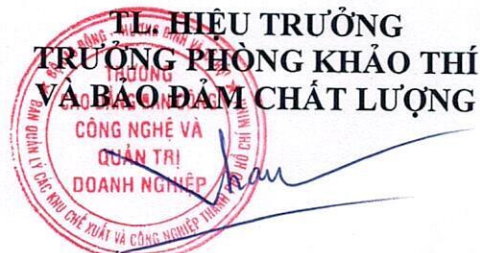 TL. HIỆU TRƯỞNG
TRƯỞNG PHÒNG KHẢO THÍ
VÀ BẢO ĐẢM CHẤT LƯỢNG
TRƯỜNG
CÔNG NGHỆ VÀ
QUẢN TRỊ
DOANH NGHIỆP
BAN QUẢN LÝ CÁC KHU CHẾ XUẤT VÀ CÔNG NGHIỆP THÀNH HỒ CHÍ MINH